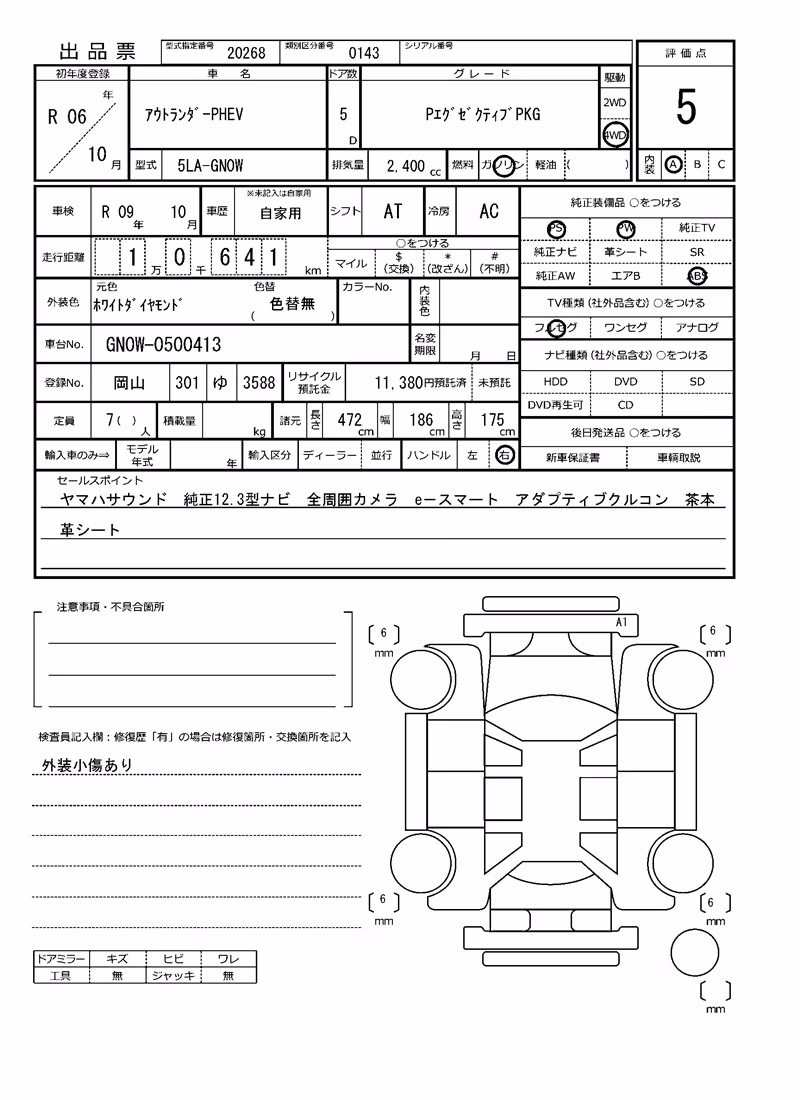 出品票 型式指定番号 20268 類別区分番号 0143 シリアル番号
評価点
初年度登録 車名 ドア数 グレード 駆動
R 06 年 10 月 ｱｳﾄﾗﾝﾀﾞｰPHEV 5 D PｴｸﾞｾﾞｸﾃｨﾌﾞPKG 2WD 4WD
5
型式 5LA-GN0W 排気量 2,400 cc 燃料 ガソリン 軽油 ( )
内装 A B C
車検 R 09 年 10 月 車歴 ※未記入は自家用 自家用 シフト AT 冷房 AC
走行距離 1 万 0 千 6 4 1 km
○をつける
マイル $ (交換) * (改ざん) # (不明)
外装色 元色 ﾎﾜｲﾄﾀﾞｲﾔﾓﾝﾄﾞ 色替 ( 色替無 ) カラーNo. 内装色
車台No. GN0W-0500413 名変期限 月 日
登録No. 岡山 301 ゆ 3588 リサイクル預託金 11,380円預託済 未預託
定員 7( ) 人 積載量 kg 諸元 長さ 472 cm 幅 186 cm 高さ 175 cm
輸入車のみ⇒ モデル年式 年 輸入区分 ディーラー 並行 ハンドル 左 右
純正装備品 ○をつける
PS PW 純正TV
純正ナビ 革シート SR
純正AW エアB ABS
TV種類(社外品含む) ○をつける
フルセグ ワンセグ アナログ
ナビ種類(社外品含む) ○をつける
HDD DVD SD
DVD再生可 CD
後日発送品 ○をつける
新車保証書 車輌取説
セールスポイント
ヤマハサウンド 純正12.3型ナビ 全周囲カメラ e－スマート アダプティブクルコン 茶本
革シート
注意事項・不具合箇所
検査員記入欄：修復歴「有」の場合は修復箇所・交換箇所を記入
外装小傷あり
ドアミラー キズ ヒビ ワレ
工具 無 ジャッキ 無
A1
6 mm
6 mm
6 mm
6 mm
mm